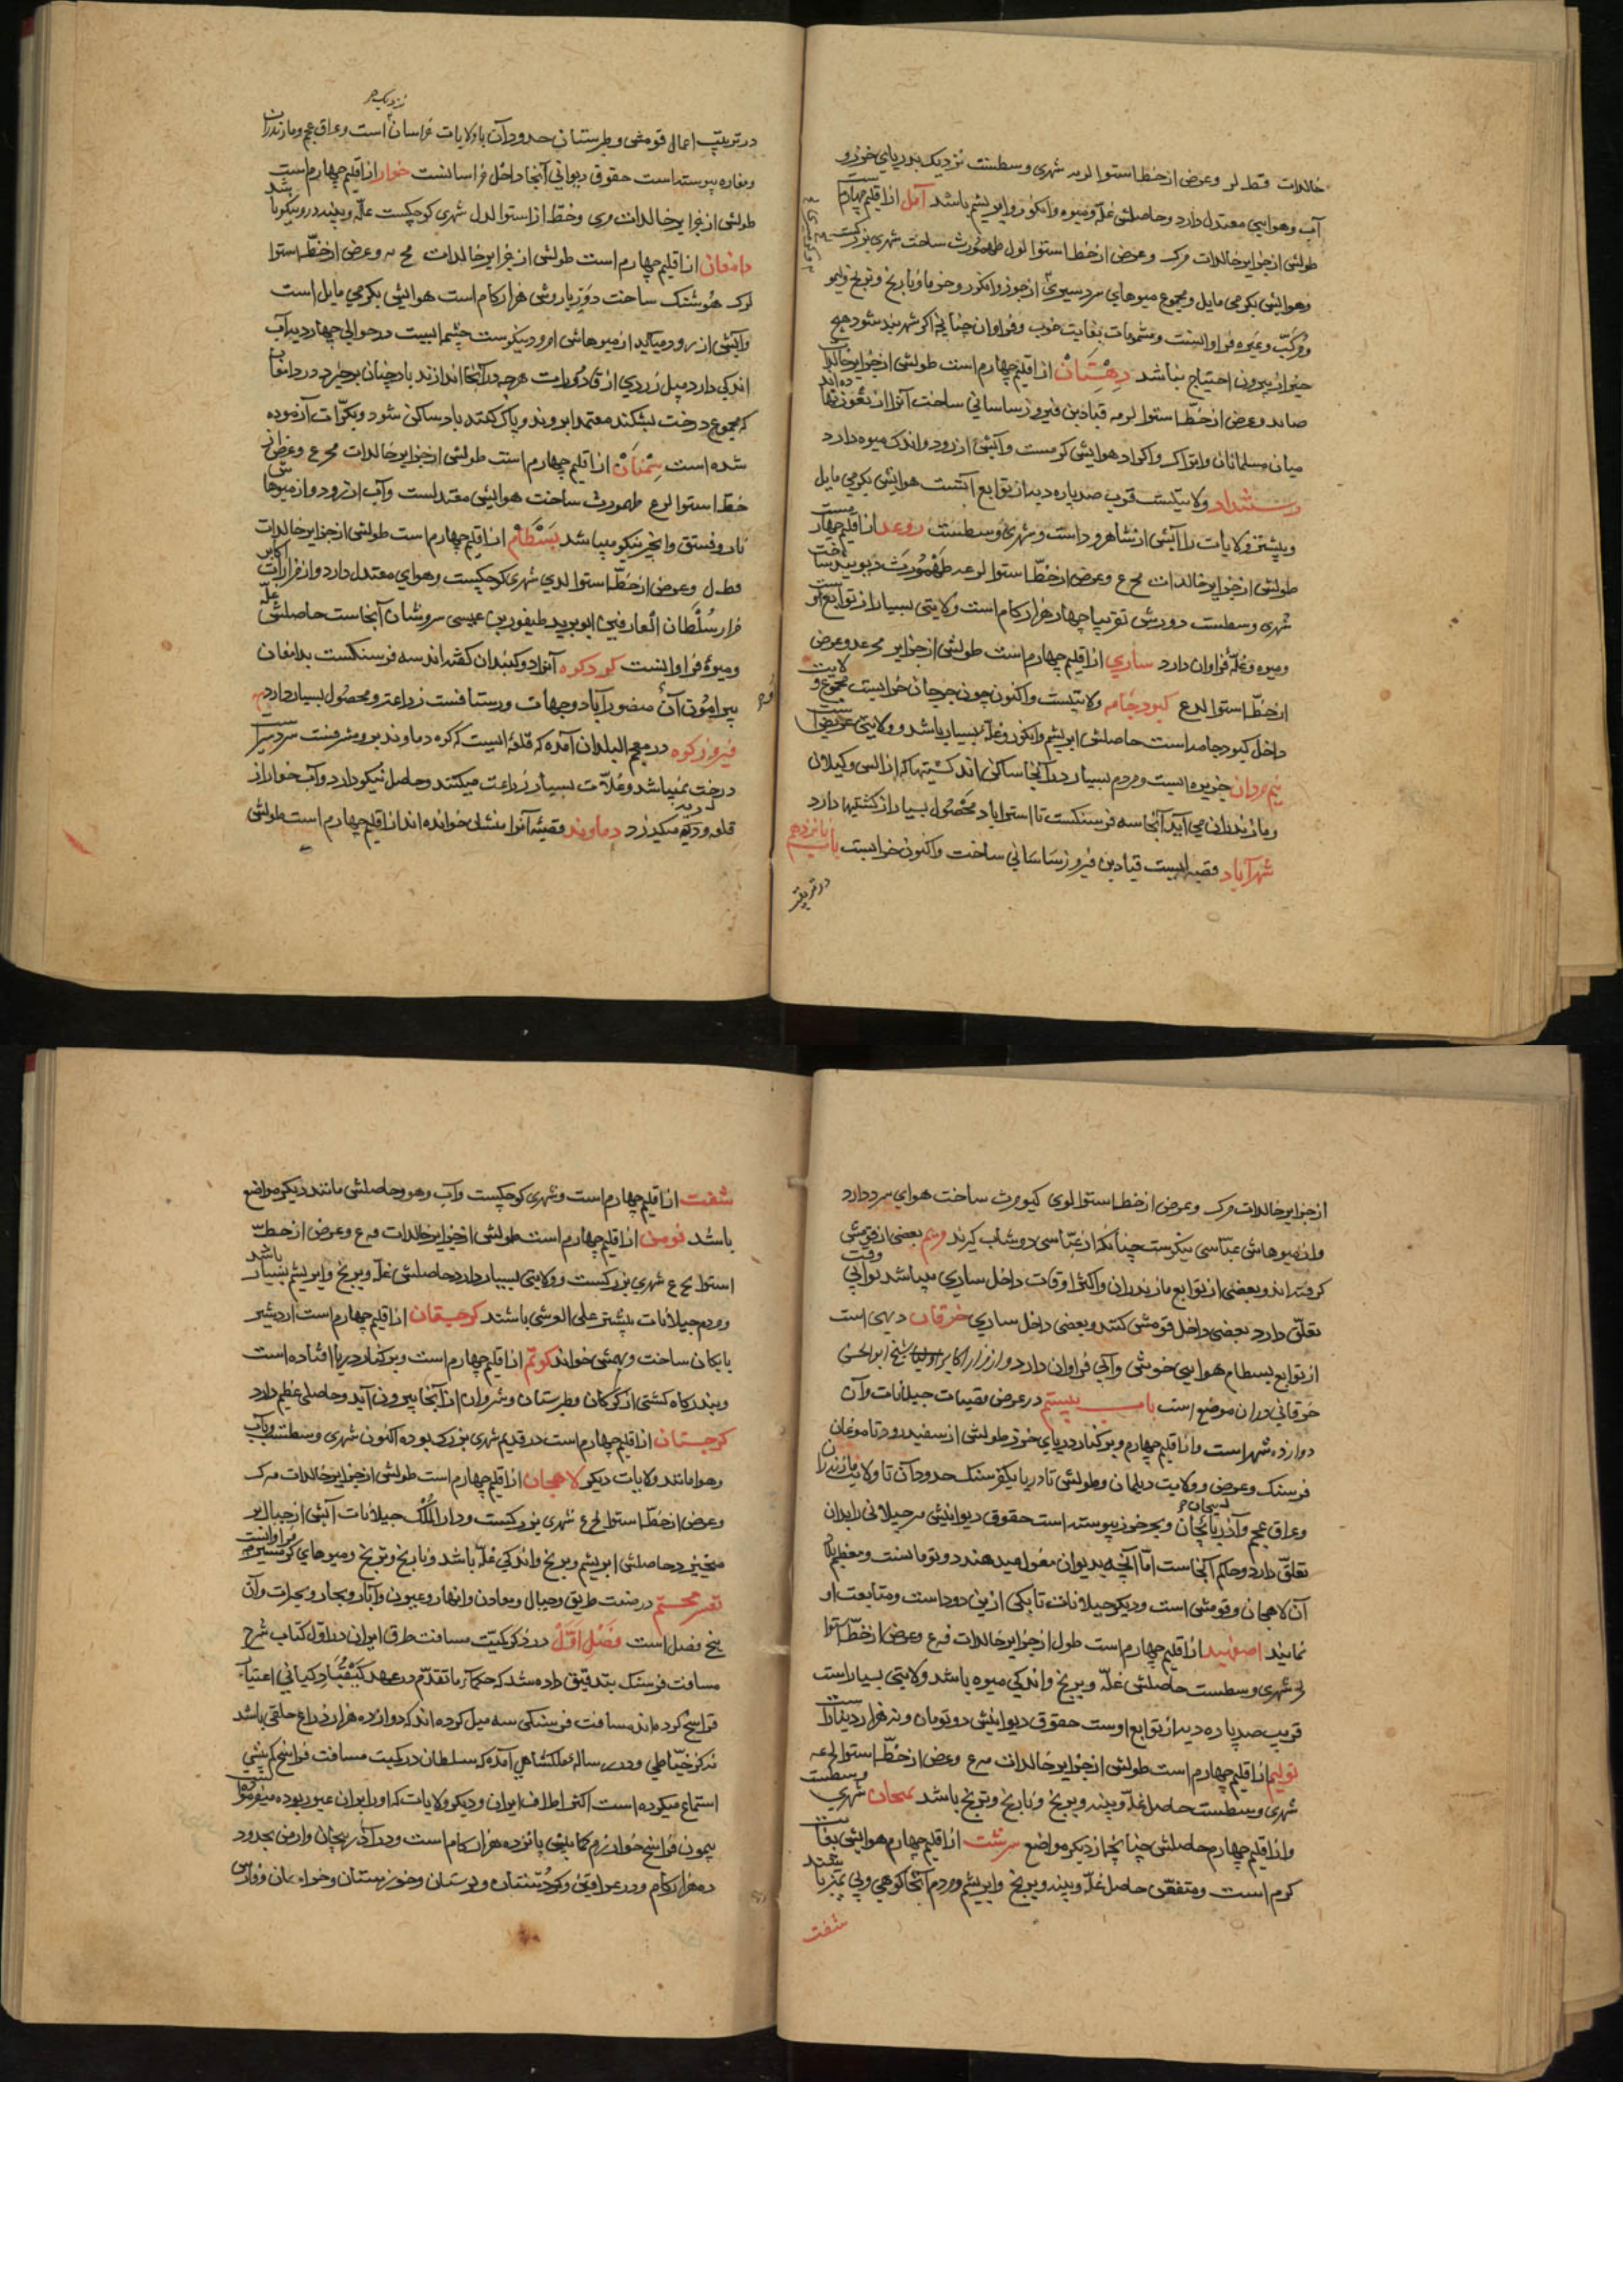 خالدات قط لر وعرض از خط استوا لو نه شهری وسطست نزدیک بدریای خزر و
آب وهوایی معتدل دارد وحاصلش غله ومیوه وانکور وابریشم باشد آمل از اقلیم چهارم
طولش از جزایر خالدات مرک وعرض از خط استوا لول طهمورث ساخت شهری بزرکست
وهوایش بکرمی مایل ومجموع میوهای سردسیری از جوز وانکور وخرما ونارنج وترنج ولیمو
ومرکب وغیره فراوانست ومشمومات بغایت خوب وفراوان چنانچه اکر شهربند شود هیچ
چیز از بیرون احتیاج نباشد دهستان از اقلیم چهارم است طولش از جزایر خالدات
وعرض از خط استوا لو مه قبادبن فیروز ساسانی ساخت آنرا از ثغور نهاده اند
میان مسلمانان واتراک واکراد هوایش کرمست وآبش از رود واندک میوه دارد
رستمدار ولایتیست قرب صد پاره دیه از توابع آنست هوایش بکرمی مایل
وبیشتر ولایات را آبش از شاهرود است وشهری وسطست روعد از اقلیم چهارمست
طولش از جزایر خالدات مح ع وعرض از خط استوا لو عه طهمورث دیوبند ساخت
شهری وسطست دورش تقریبا چهار هزار کام است ولایتی بسیار از توابع اوست
ومیوه وغله فراوان دارد ساری از اقلیم چهارم است طولش از جزایر مح عد وعرض
از خط استوا لد ع کبودجامه ولایتیست واکنون چون جرجان خرابست مجموع ولایت
داخل کبودجامه است حاصلش ابریشم وانکور وغله بسیار باشد وولایتی عریض است
نیم مردان جزیره ایست ومردم بسیار در آنجا ساکن اند کشتیها که از السی وکیلان
ومازندران می آید آنجا سه فرسنکست تا استراباد محصول بسیار از کشتیها دارد
شهرآباد قصبه ایست قبادبن فیروز ساسانی ساخت واکنون خرابست باب نانزدهم
در ترتیب اعمال قومش وطبرستان حدود آن با ولایات خراسان است وعراق عجم ومازندران
ومفازه پیوسته است حقوق دیوانی آنجا داخل خراسانست خوار از اقلیم چهارم است
طولش از جزایر خالدات مری وخط از استوا لدل شهری کوچکست غله وپنبه درو نیکو باشد
دامغان از اقلیم چهارم است طولش از جزایر خالدات مح نه وعرض از خط استوا
لرک هوشنک ساخت دور باروش هزار کام است هوایش بکرمی مایل است
وآبش از رود میاید از میوهاش امرود نیکوست چشمه ایست در حوالی چهار دیه آب
اندکی دارد میل زردی از قاذورات هرچه در آنجا اندازند باد چنان برخیزد در دامغان
که مجموع درخت بشکند معتمدان بروند وپاک کنند باد ساکن شود وبکرات آزموده
شده است سمنان از اقلیم چهارم است طولش از جزایر خالدات مح ع وعرض از
خط استوا لو ع طهمورث ساخت هوایش معتدلست وآب از رود واز میوهاش
نار وفستق وانجیر نیکو میباشد بسطام از اقلیم چهارم است طولش از جزایر خالدات
فط ل وعرض از خط استوا لدی شهری کوچکست وهوای معتدل دارد واز مزارات اکابر
مزار سلطان العارفین ابو یزید طیفوربن عیسی سروشان آنجاست حاصلش غله
ومیوه فراوانست کردکوه آنرا دژ کنبدان کفته اند سه فرسنکست بدامغان
پیرامون آن منصورآباد وجهات ورستاقست زراعتو ومحصول بسیار دارد
فیروزکوه در معجم البلدان آمده که قلعه ایست که کوه دماوند برو مشرفست سردسیر است
درخت نمیباشد وغلات بسیار زراعت میکنند وحاصل نیکو دارد وآب خوار از
قلعه ودیه میکذرد دماوند قصبه آنرا بنشان خوانده اند از اقلیم چهارم است طولش
از جزایر خالدات مرک وعرض از خط استوا لوی کیومرث ساخت هوای سرد دارد
واز میوهاش عباسی نیکوست چنانکه از عباسی دوشاب کیرند وریم بعضی از قومش
کرفته اند وبعضی از توابع مازندران واکثر اوقات داخل ساری میباشد بوابی وقت
تعلق دارد بعضی داخل قومش کنند وبعضی داخل ساری خرقان دیهی است
از توابع بسطام هوایی خوش وآبی فراوان دارد واز مزار اکابر اولیا شیخ ابوالحسن
خرقانی دران موضع است باب بیستم در عرض بقیات جیلانات وآن
دوازده شهر است واز اقلیم چهارم وبر کنار دریای خزر طولش از سفیدرود تا موغان
فرسنک وعرض وولایت دیلمان وطولش تا دریا یکفرسنک حدود آن تا ولایت مازندران
وعراق عجم وآذربایجان وبحر خزر پیوسته است حقوق دیوانیش
تعلق دارد وحاکم آنجاست اما آنچه بدیوان مغول میدهند دو تومانست ومعظم بلاد
آن لاهجان وقومش است ودیکر جیلانات تا یکی ازین دوداست ومتابعت او
نمایند اصفهبد از اقلیم چهارم است طول از جزایر خالدات فرع وعرض از خط استوا
لر شهری وسطست حاصلش غله وبرنج واندکی میوه باشد ولایتی بسیار است
قریب صد پاره دیه از توابع اوست حقوق دیوانیش دو تومان ونه هزار دینار است
تولیم از اقلیم چهارم است طولش از جزایر خالدات مه ع وعرض از خط استوا لح عه
شهری وسطست حاصل غله وپنبه وبرنج ونارنج وترنج باشد تمیجان شهری وسطست
واز اقلیم چهارم حاصلش چنانچه از دیکر مواضع رشت از اقلیم چهارم هوایش بغایت
کرم است ومتعفن حاصل غله وپنبه وبرنج وابریشم ومردم آنجا کوهی وبی تمیز باشند
شفت
شفت از اقلیم چهارم است وشهری کوچکست وآب وهوا وحاصلش مانند دیکر مواضع
باشد فومن از اقلیم چهارم است طولش از جزایر خالدات فه ع وعرض از خط
استوا لح ع شهری بزرکست وولایتی بسیار دارد حاصلش غله وبرنج وابریشم بسیار باشد
ومردم جیلانات بیشتر علی العرشی باشند کرجیقان از اقلیم چهارم است اردشیر
بابکان ساخت وبهمش خواند کوتم از اقلیم چهارم است وبر کنار دریا افتاده است
وبندرکاه کشتی از کرکان وطبرستان وشروان از آنجا بیرون آید وحاصل عظیم دارد
کرجستان از اقلیم چهارم است در قدیم شهری بزرک بوده اکنون شهری وسطست وآب
وهوا مانند ولایات دیکر لاهجان از اقلیم چهارم است طولش از جزایر خالدات مه ک
وعرض از خط استوا لح ع شهری بزرکست ودار الملک جیلانات آبش از جبال بر
میخیزد حاصلش ابریشم وبرنج واندکی غله باشد ونارنج وترنج ومیوهای کرمسیری فراوانست
در صفت طریق وجبال ومعادن وانهار وعیون وآبار وبحار وبحیرات وآن
پنج فصل است فصل اول در ذکر کیفیت مسافت طرق ایران در اول کتاب شرح
مسافت فرسنک بتدقیق داده شد که حکمآء ما تقدم در عهد کیقباد کیانی اعتبار
فراسخ کرده اند مسافت فرسنکی سه میل کرده اند که دوازده هزار ذراع خلقی باشد
نه کز خیاطی ودر رساله ملکشاهی آمده که سلطان در کمیت مسافت فراسخ
استماع میکرده است اکثر اطراف ایران ودیکر ولایات که او را بران عبور بوده میفرمود
پیمودن فراسخ خوارزم کمابیش پانزده هزار کام است ودر آذربیجان وارمن بحدود
ده هزار کام ودر عراقین وکردستان ولرستان وخوزستان وخراسان وفارس